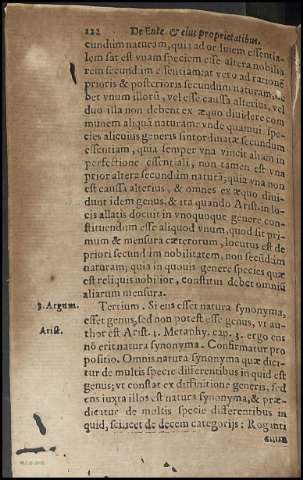 122 De Ente & eius proprietatibus.
cundum naturam, quia ad ordinem essentia-
lem sat est vnam speciem esse altera nobilio
rem secundum essentiam: at vero ad rationē
prioris & posterioris secundum naturam, de
bet vnum illorū, vel esse caussa alterius, vel
duo illa non debent ex æquo diuidere com
munem aliquā naturam: vnde quamuis spe-
cies alicuius generis sint ordinatæ secundum
essentiam, quia semper vna vincit aliam in
perfectione essentiali, non tamen est vna
prior altera secundum naturā, quia vna non
est caussa alterius, & omnes ex æquo diui-
dunt idem genus, & ita quando Arist. in lo-
cis allatis docuit in vnoquoque genere con-
stituendum esse aliquod vnum, quod sit pri-
mum & mensura cæterorum, locutus est de
priori secundum nobilitatem, non secūdum
naturam, quia in quouis genere species quæ
est reliquis nobilior, constitui debet omniū
aliarum mensura.
3. Argum. Tertium. Si ens esset natura synonyma,
esset genus, sed non potest esse genus, vt au-
Arist. thor est Arist. 3. Metaphy. cap. 3. ergo ens
nō erit natura synonyma. Confirmatur pro
positio. Omnis natura synonyma quæ dici-
tur de multis specie differentibus in quid est
genus, vt constat ex diffinitione generis, sed
ens iuxta illos est natura synonyma, & præ-
dicatur de multis specie differentibus in
quid, scilicet de decem categorijs: Ergo